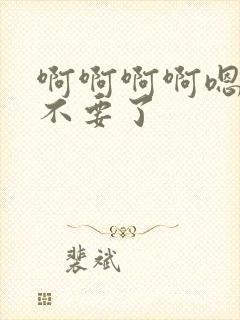 啊啊啊啊嗯
不要了
裴斌